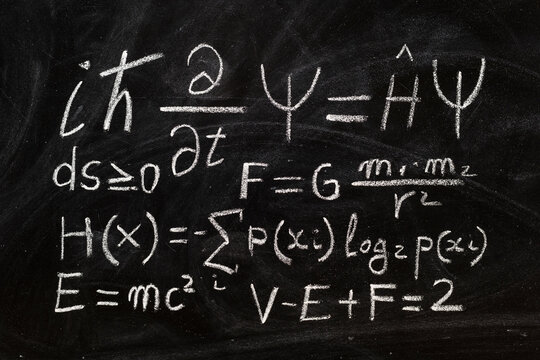 iħ ∂/∂t Ψ = ĤΨ
ds≥0 F=G m₁·m₂/r²
H(x)=-∑ᵢ p(xᵢ)log₂p(xᵢ)
E=mc² V-E+F=2